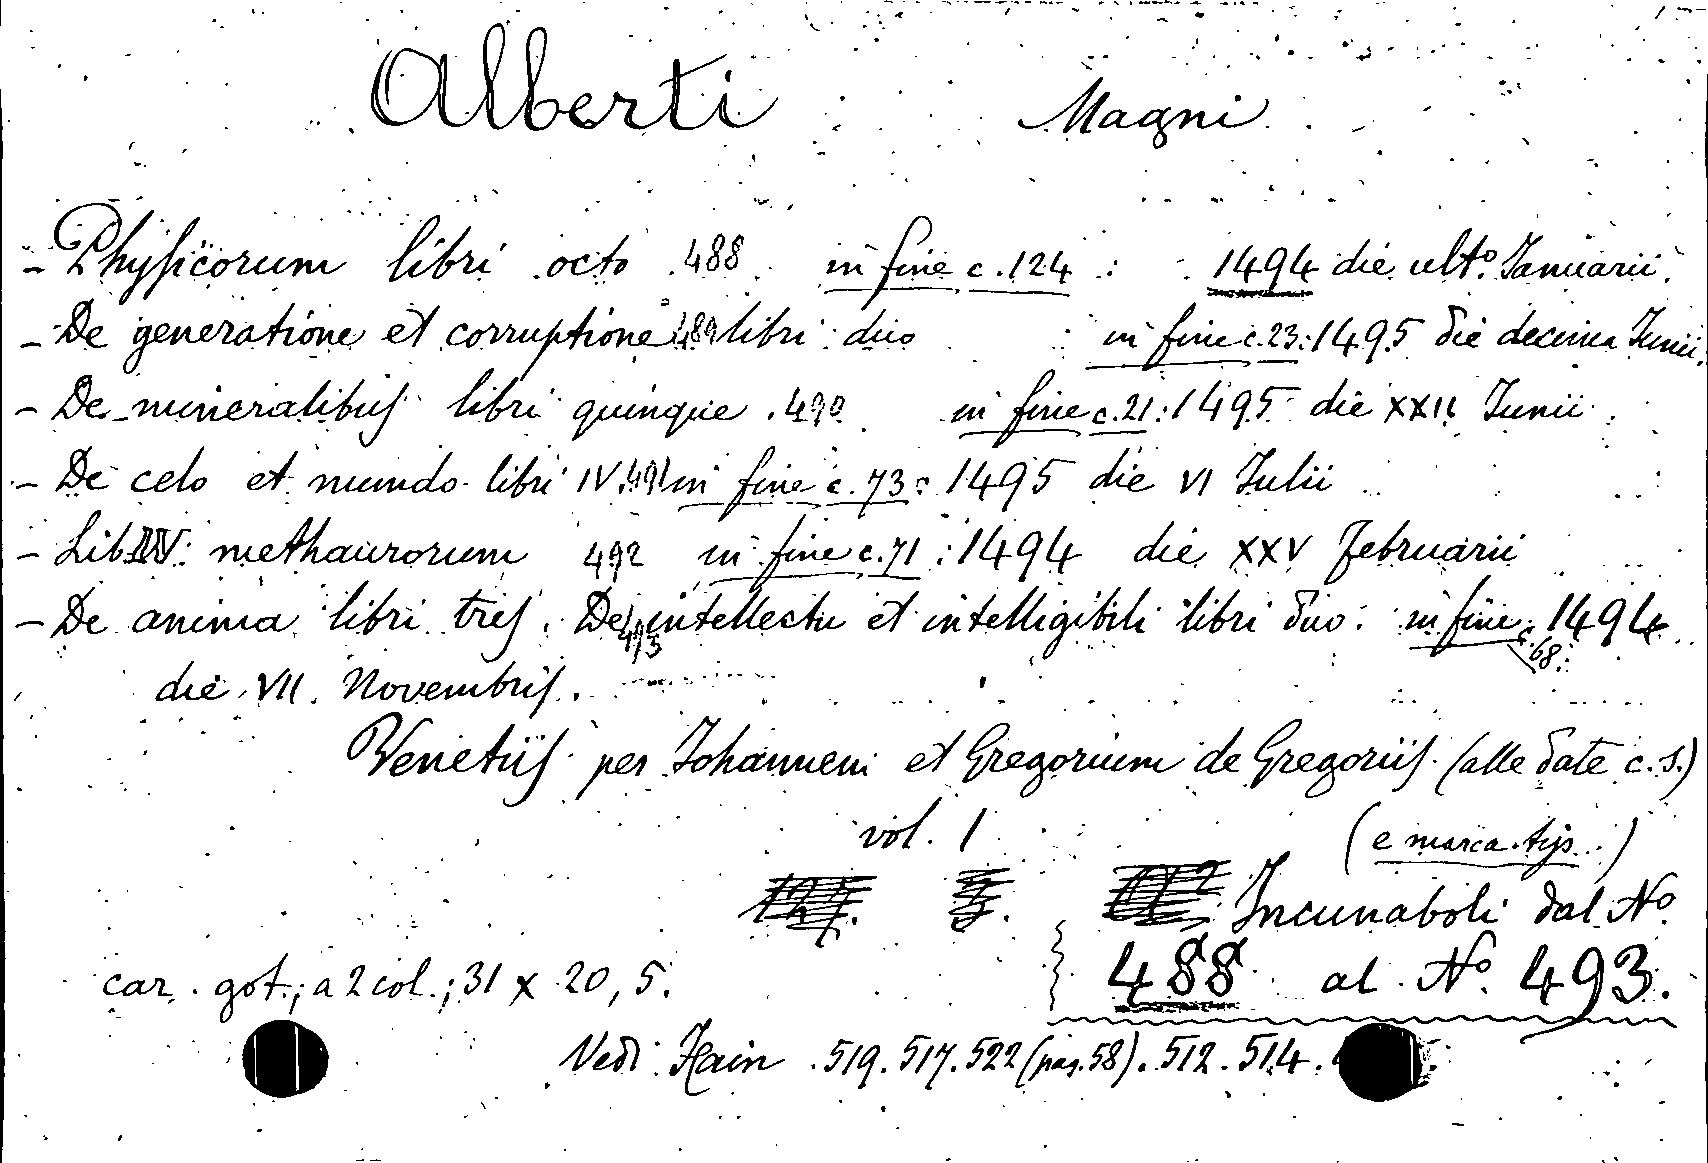 Alberti Magni
- Physicorum libri octo 488 in fine c. 124 : 1494 die ult.o Ianuarii.
- De generatione et corruptione 489 libri duo in fine c. 23 : 1495 die decima Iunii.
- De mineralibus libri quinque . 490 in fine c. 21 : 1495 die XXII Iunii
- De celo et mundo libri IV. 491 in fine c. 73 : 1495 die VI Iulii
- Lib. IV. methaurorum 492 in fine c. 71 : 1494 die XXV Februarii
- De anima libri tres. De intellectu et intelligibili libri duo : in fine 1494
493 c. 68 :
die VII. Novembris.
Venetiis per Iohannem et Gregorium de Gregoriis. (alle date c. s.)
vol. 1 (e marca tip.)
Incunaboli dal No
488 al No. 493.
car. got.; a 2 col.; 31 x 20,5.
Vedi Hain . 519. 517. 522 (pag. 58). 512. 514.